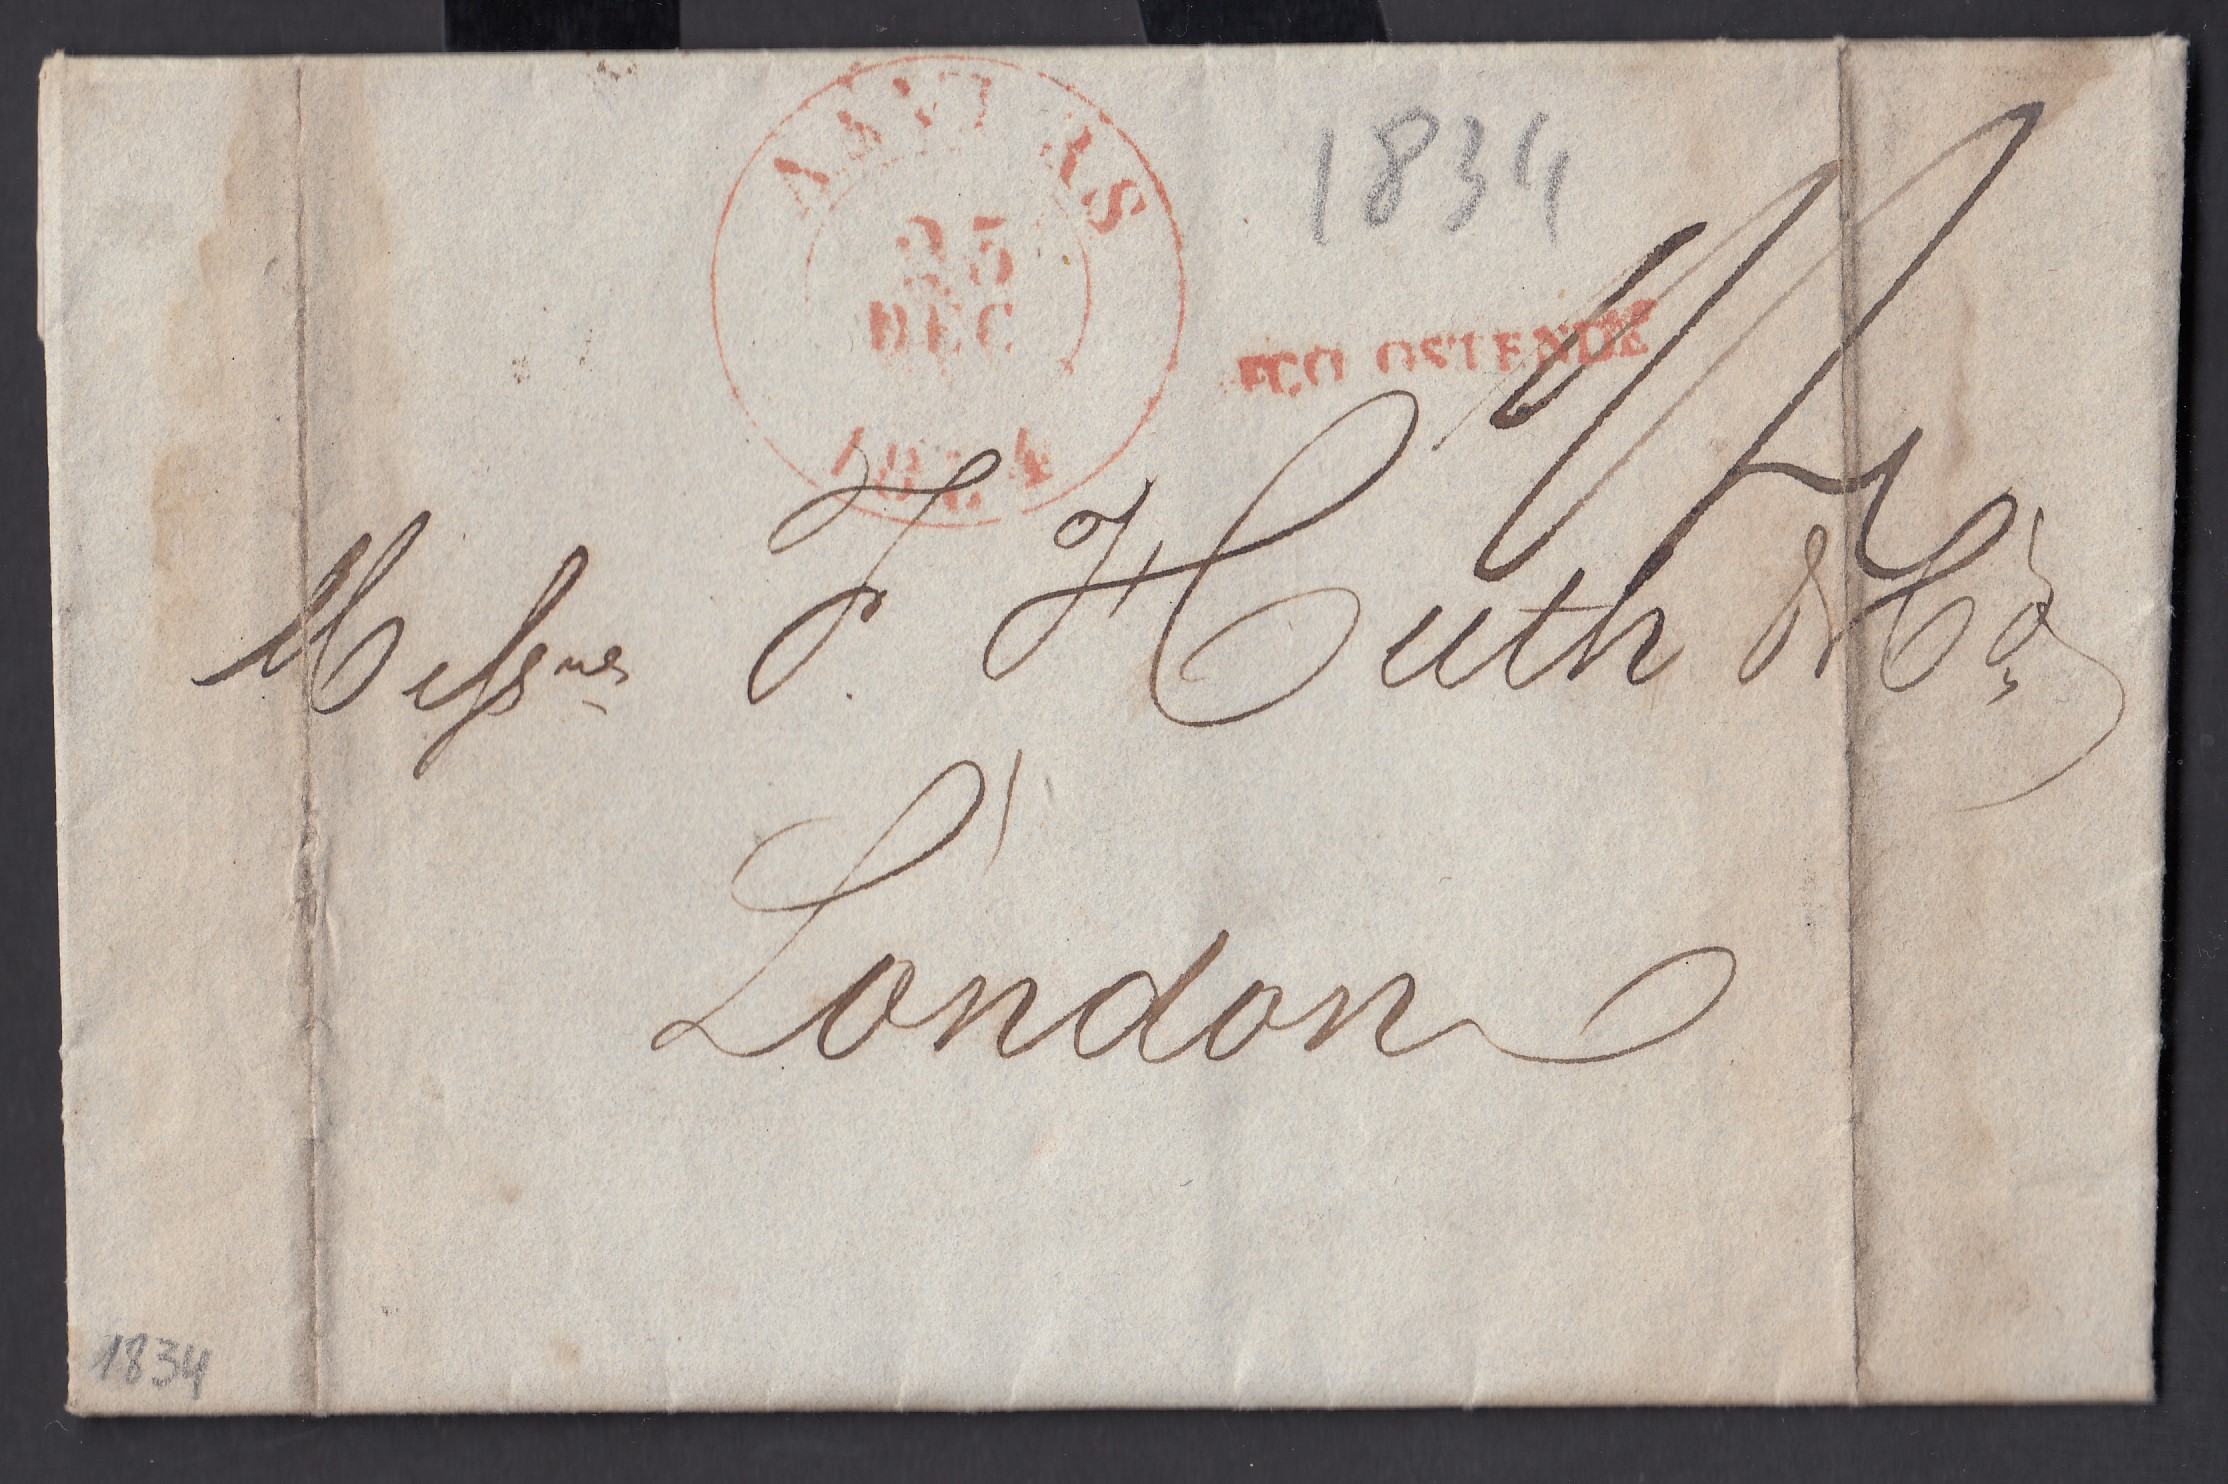 ANVERS
25
DEC
1834
1834
FCO OSTENDE
1/4
Messrs F. Huth & Co
London
1834